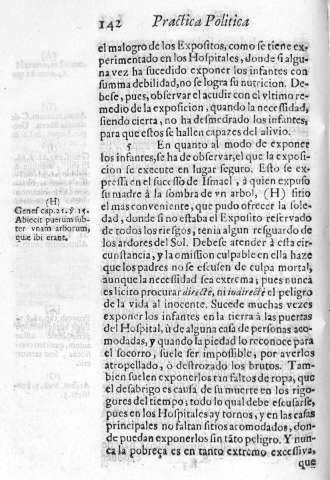 142 Practica Politica
el malogro de los Expositos, como se tiene ex-
perimentado en los Hospitales, donde si algu-
na vez ha sucedido exponer los infantes con
summa debilidad, no se logra su nutricion. De-
bese, pues, observar el acudir con el vltimo re-
medio de la exposicion, quando la necessidad,
siendo cierta, no ha desmedrado los infantes,
para que estos se hallen capazes del alivio.
5 En quanto al modo de exponer
los infantes, se ha de observar, el que la exposi-
cion se execute en lugar seguro. Esto se ex-
pressa en el sucesso de Ismael, à quien expuso
su madre à la sombra de vn arbol, (H) sitio
el mas conveniente, que pudo ofrecer la sole-
dad, donde si no estaba el Exposito reservado
de todos los riesgos, tenia algun resguardo de
los ardores del Sol. Debese atender à esta cir-
cunstancia, y la omission culpable en ella haze
que los padres no se escusen de culpa mortal,
aunque la necessidad sea extrema; pues nunca
es licito procurar directè, ni indirectè el peligro
de la vida al inocente. Sucede muchas vezes
exponer los infantes en la tierra à las puertas
del Hospital, ù de alguna casa de personas aco-
modadas, y quando la piedad lo reconoce para
el socorro, suele ser impossible, por averlos
atropellado, ò destrozado los brutos. Tam-
bien suelen exponerlos tan faltos de ropa, que
el desabrigo es causa de su muerte en los rigo-
gores del tiempo; todo lo qual debe escusarse,
pues en los Hospitales ay tornos, y en las casas
principales no faltan sitios acomodados, don-
de puedan exponerlos sin tãto peligro. Y nun-
ca la pobreça es en tanto extremo excessiva,
que
(H)
Genes. cap. 21. ℣ 15.
Abiecit puerum sub-
ter vnam arborum,
quæ ibi erant.